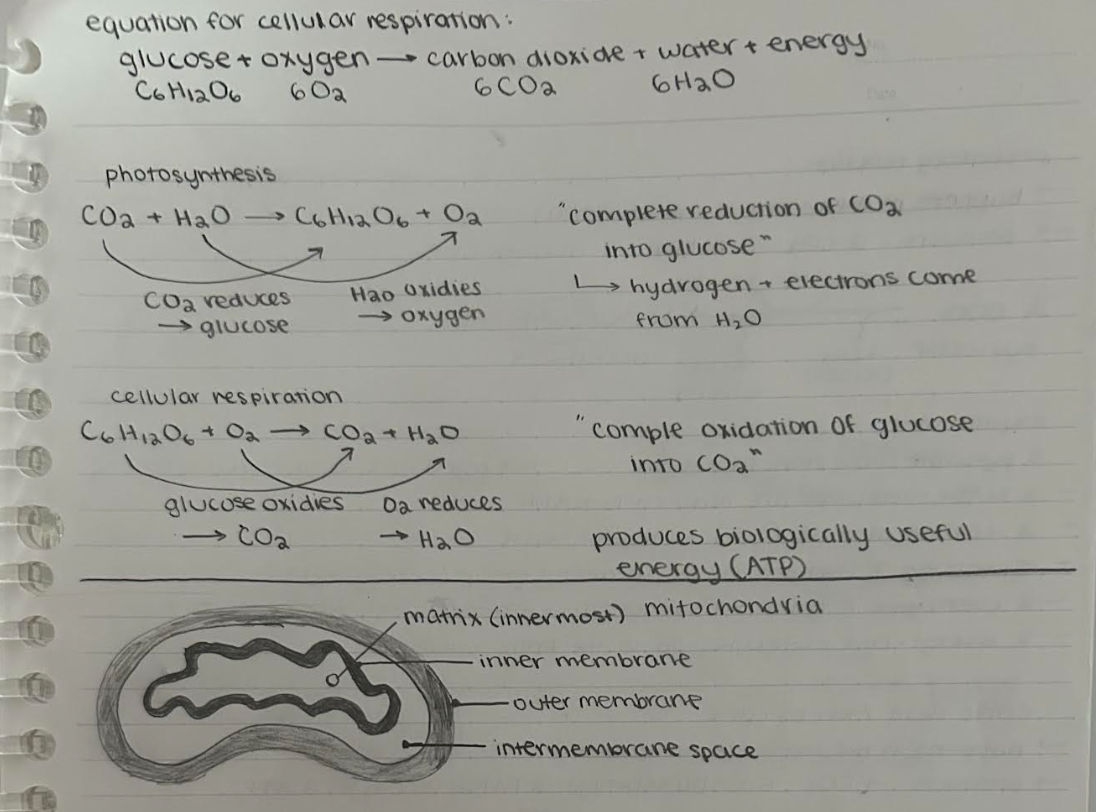 equation for cellular respiration:
glucose + oxygen → carbon dioxide + water + energy
C6H12O6 6O2 6CO2 6H2O
photosynthesis
CO2 + H2O → C6H12O6 + O2
CO2 reduces
→ glucose
H2O oxidies
→ oxygen
"complete reduction of CO2
into glucose"
↳ hydrogen + electrons come
from H2O
cellular respiration
C6H12O6 + O2 → CO2 + H2O
glucose oxidies
→ CO2
O2 reduces
→ H2O
"comple oxidation of glucose
into CO2"
produces biologically useful
energy (ATP)
matrix (innermost) mitochondria
inner membrane
outer membrane
intermembrane space